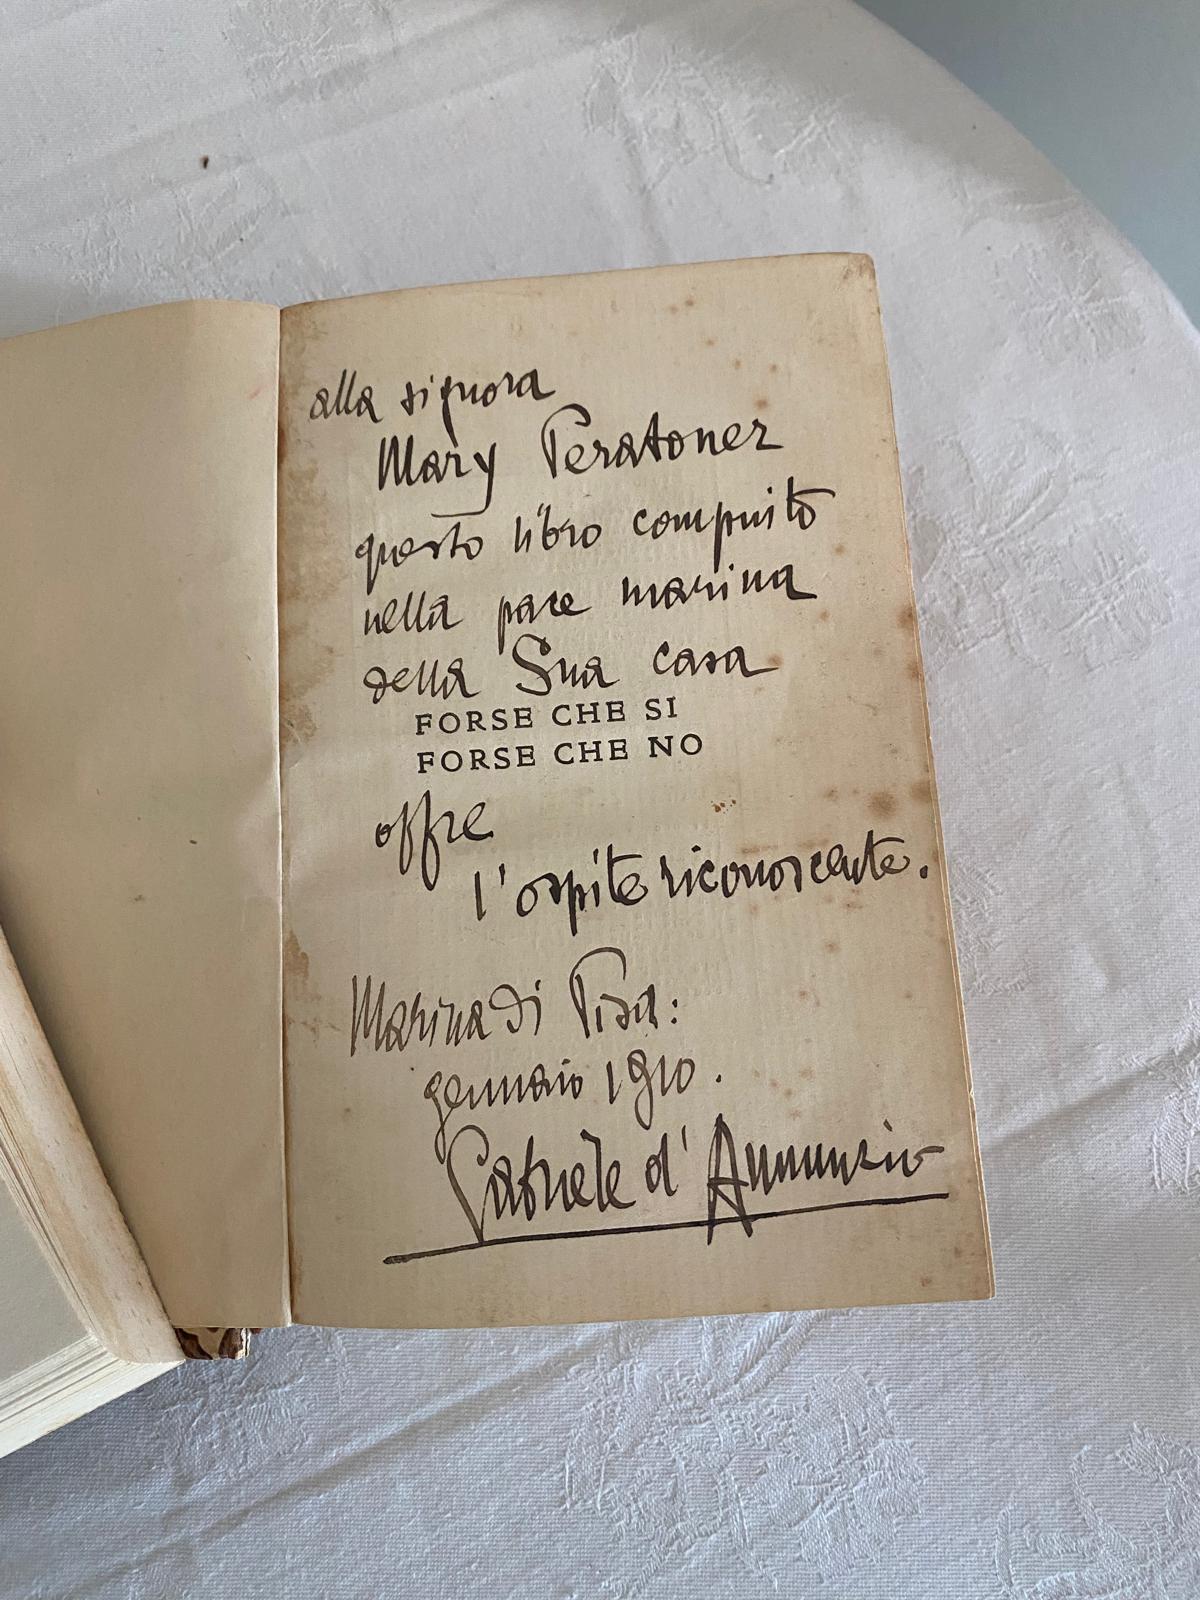 alla signora
Mary Peratoner
questo libro compiuto
nella pace marina
della Sua casa
FORSE CHE SI
FORSE CHE NO
offre
l'ospite riconoscente.
Marina di Pisa:
gennaio 1910.
Gabriele d'Annunzio